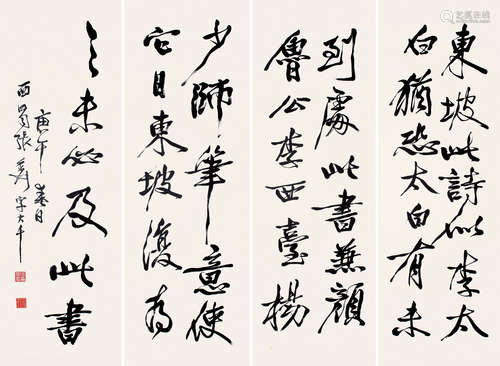 東坡此詩似李太
白猶恐太白有未
到處此書兼顏
魯公李西臺楊
少師筆意使
它日東坡復為
之未必及此書
庚午春日
西蜀張爰字大千